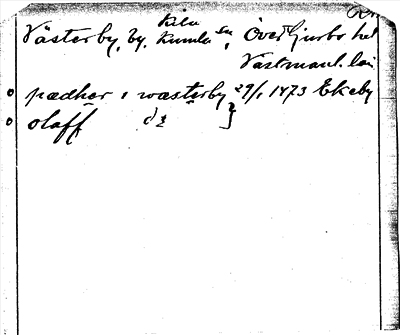 Kila
Västerby, by, Kumla sn, Övertjurbo hd
Västmanl. län
pædher i wæsterby 29/1 1473 Ekeby
olaff do }